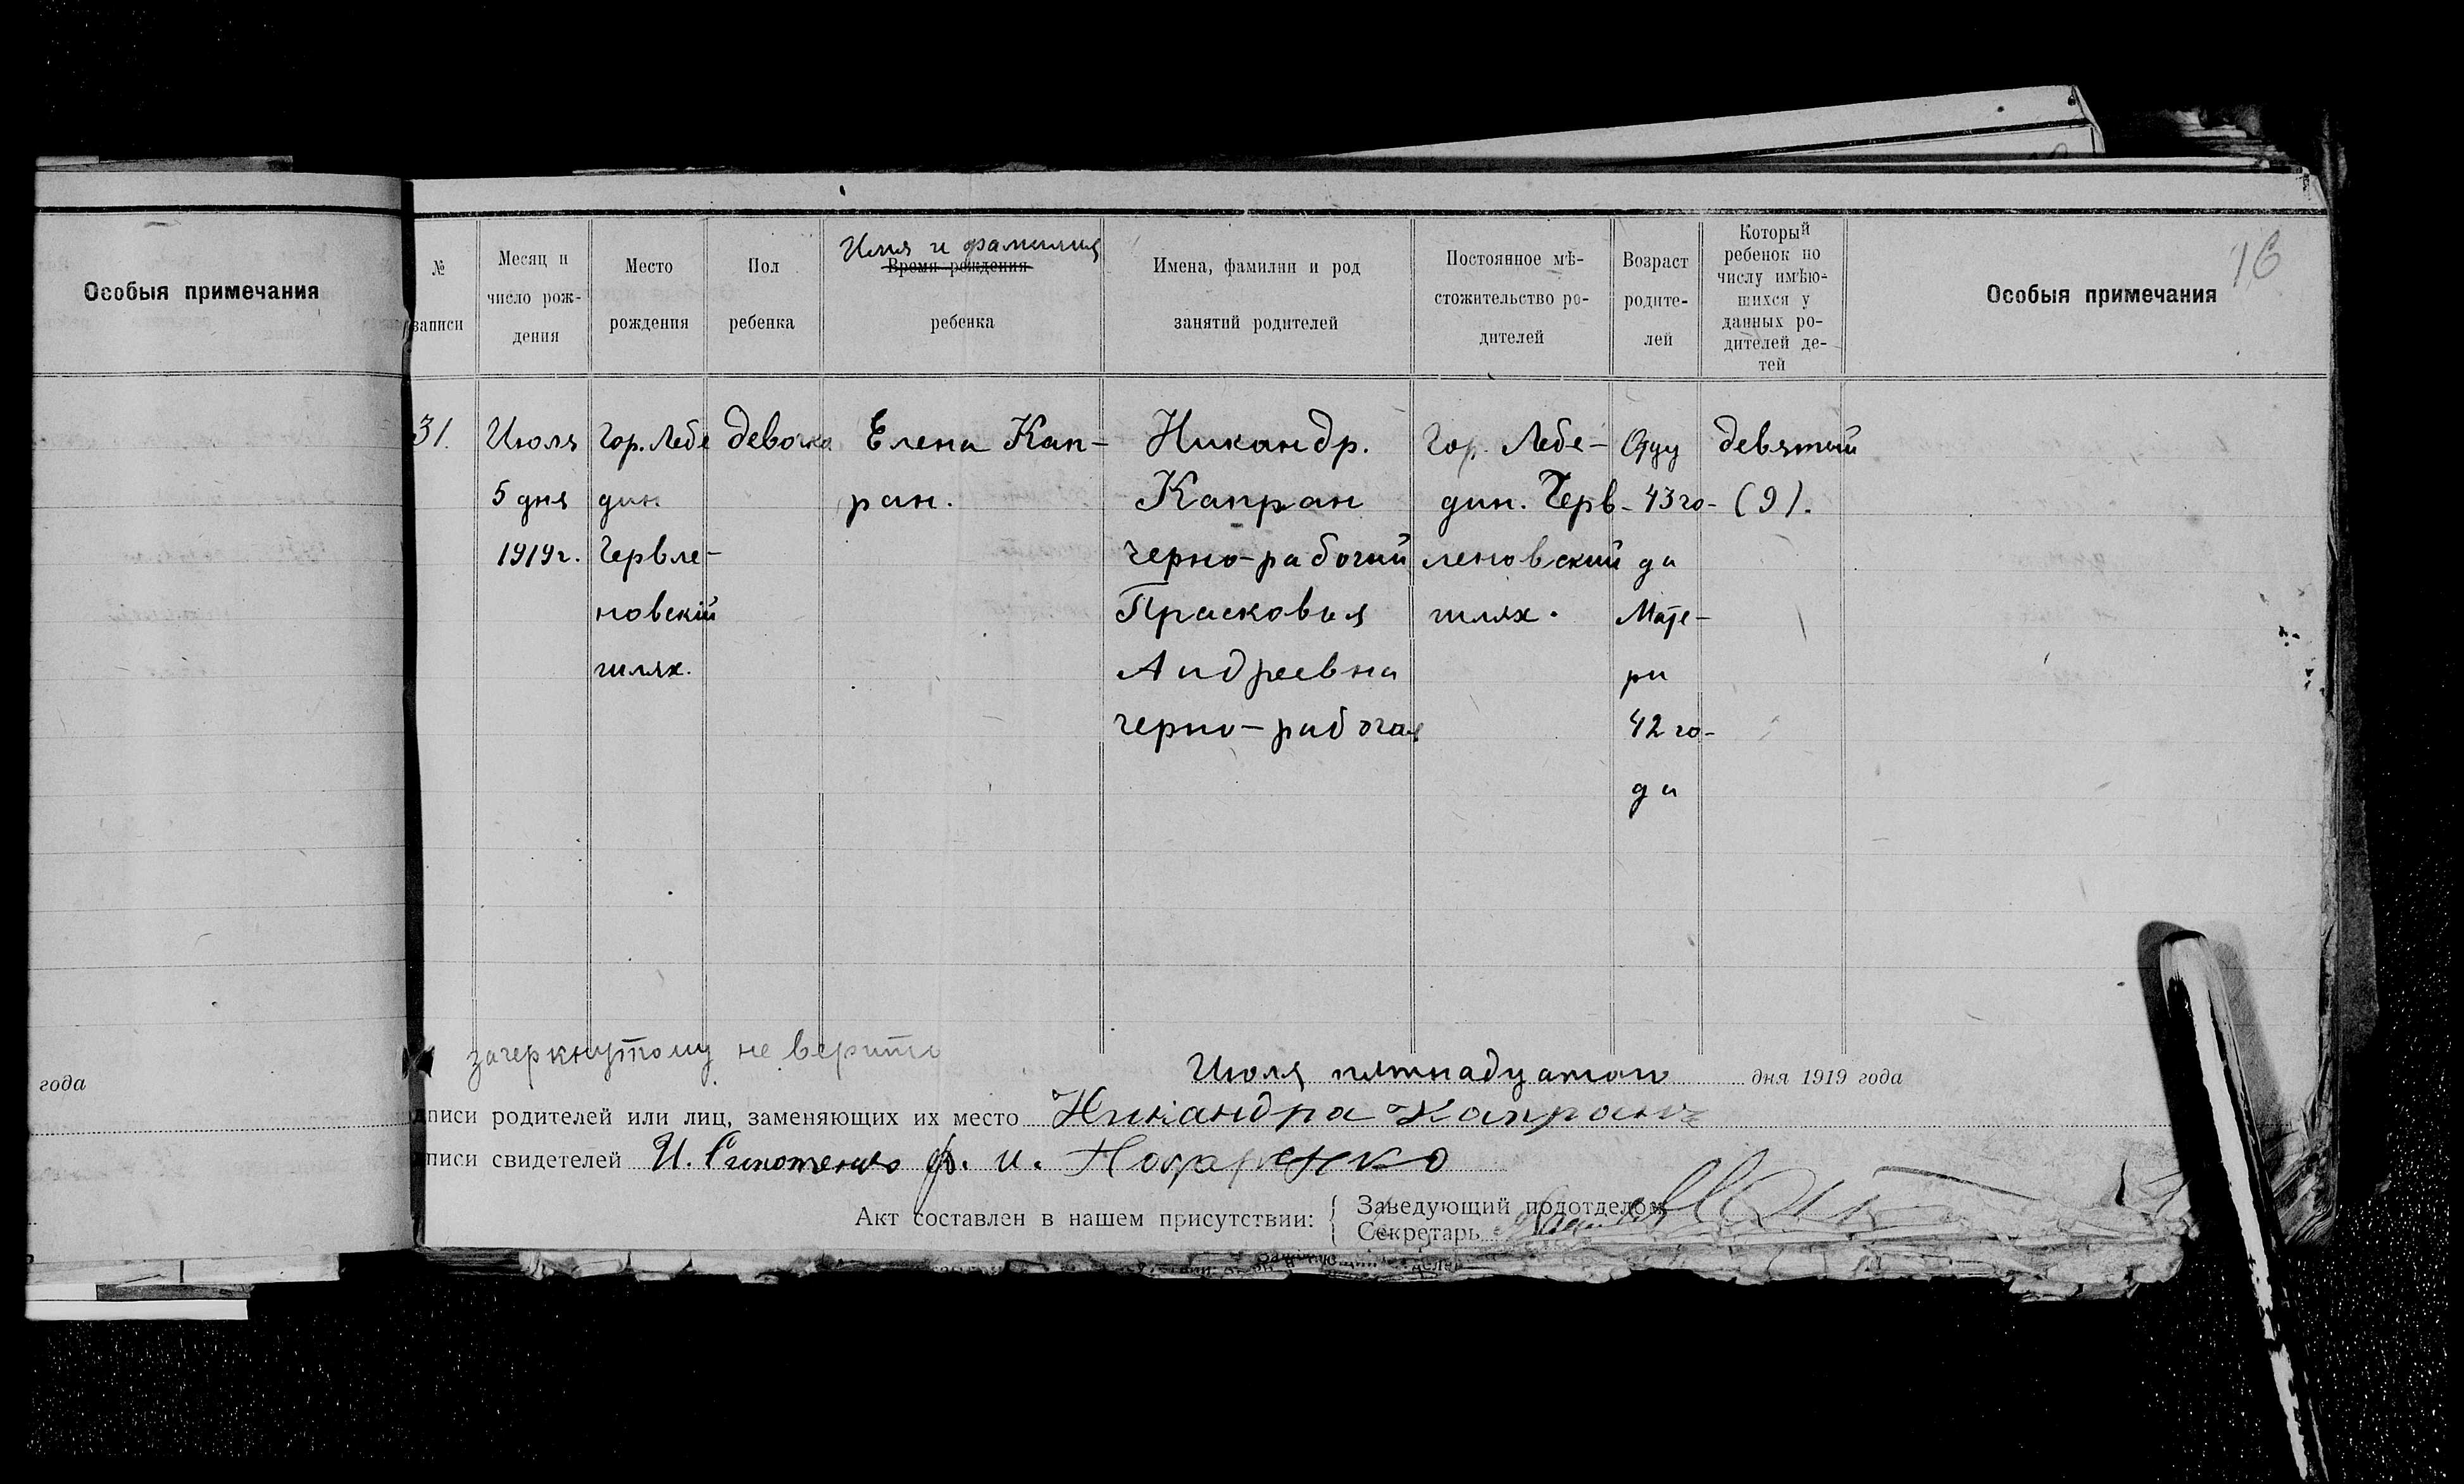 16
Особыя примечания
№
записи
Месяц и
число рож-
дения
Место
рождения
Пол
ребенка
Имя и фамилия
Время рождения
ребенка
Имена, фамилии и род
занятий родителей
Постоянное мѣ-
стожительство ро-
дителей
Возраст
родите-
лей
Который
ребенок по
числу имѣю-
щихся у
данных ро-
дителей де-
тей
Особыя примечания
31.
Июля
5 дня
1919г.
Гор. Лебе
дин.
Червле-
новский
шлях.
девочка
Елена Кап-
ран.
Никандр.
Капран
черно-рабочий
Прасковия
Андреевна
черно-рабочая
Гор. Лебе-
дин. Черв-
леновский
шлях.
Отцу
43 го-
да
Мате-
ри
42 го-
да
девятый
(9).
зачеркнутому не верить
года
Июля пятнадцатого дня 1919 года
дписи родителей или лиц, заменяющих их место Никандра Капрана
писи свидетелей И. ф. и.
Акт составлен в нашем присутствии:
Заведующий подотделом
Секретарь